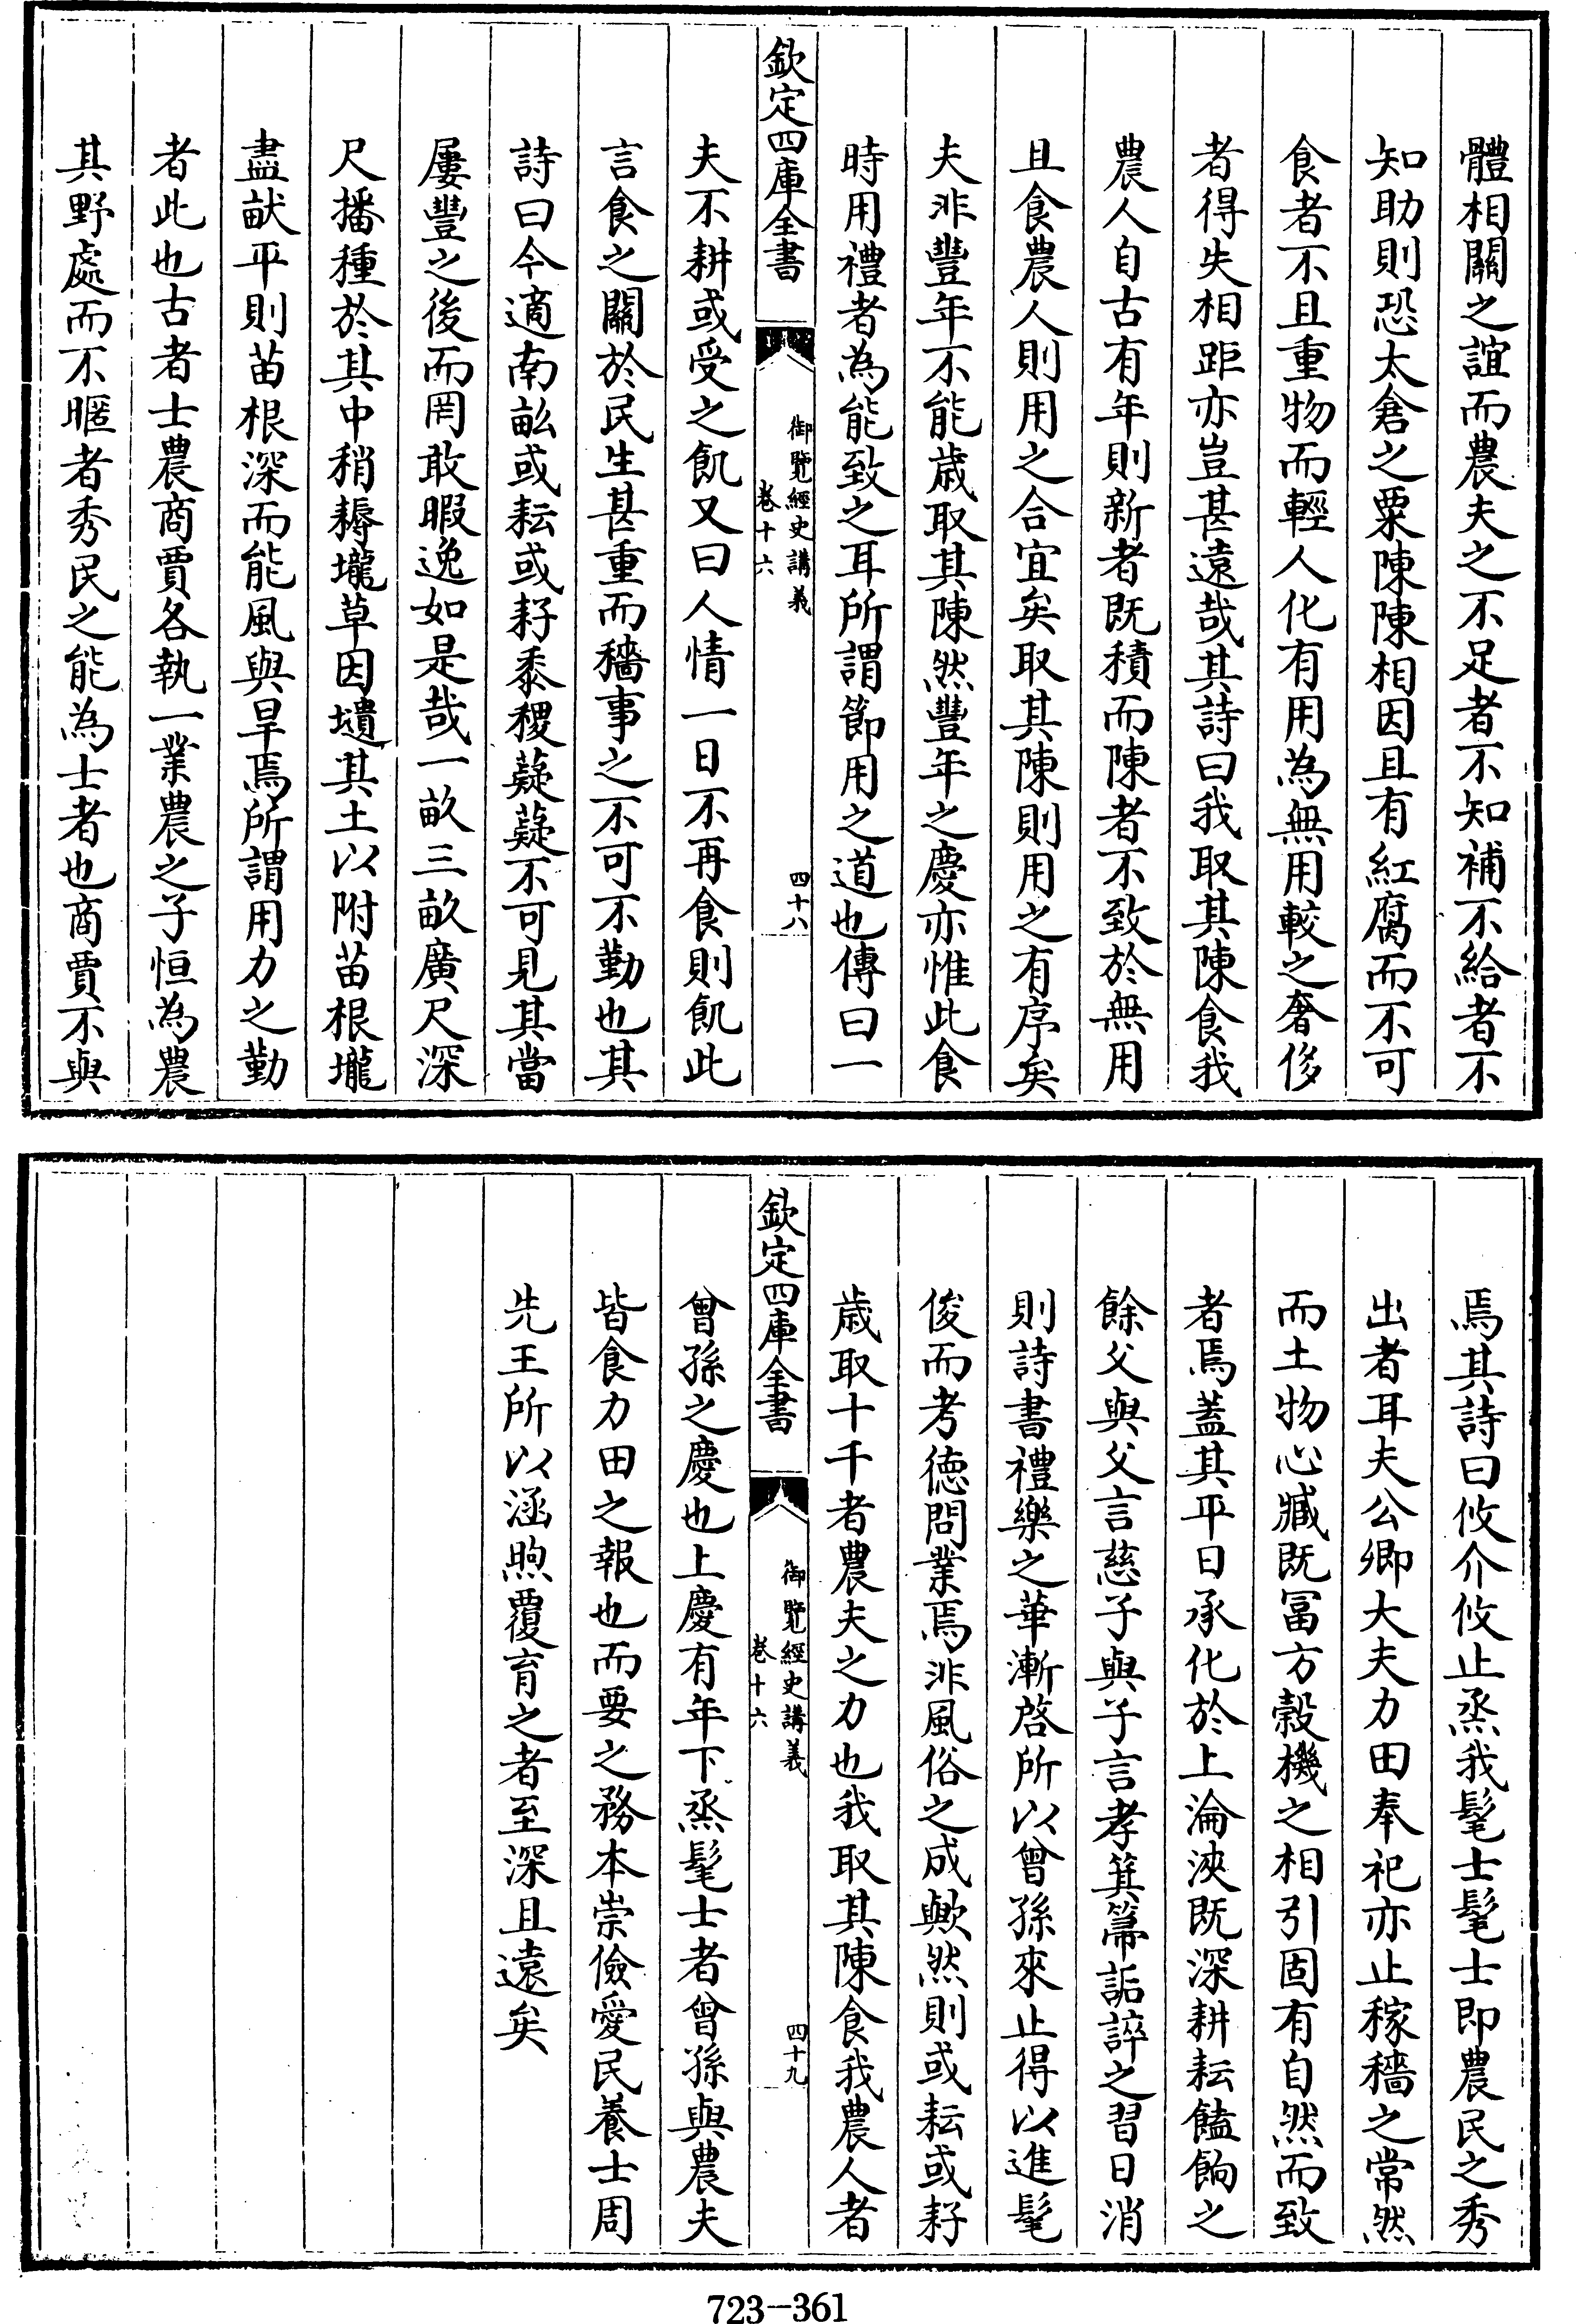 體相關之誼而農夫之不足者不知補不給者不
知助則恐太倉之粟陳陳相因且有紅腐而不可
食者不且重物而輕人化有用為無用較之奢侈
者得失相距亦豈甚遠哉其詩曰我取其陳食我
農人自古有年則新者既積而陳者不致於無用
且食農人則用之合宜矣取其陳則用之有序矣
夫非豐年不能歳取其陳然豐年之慶亦惟此食
時用禮者為能致之耳所謂節用之道也傳曰一
欽定四庫全書
御覽經史講義
卷十六
四十八
夫不耕或受之飢又曰人情一日不再食則飢此
言食之關於民生甚重而穡事之不可不勤也其
詩曰今適南畝或耘或耔黍稷薿薿不可見其當
屢豐之後而罔敢暇逸如是哉一畝三畝廣尺深
尺播種於其中稍耨壠草因壝其土以附苗根壠
盡畎平則苗根深而能風與旱焉所謂用力之勤
者此也古者士農商賈各執一業農之子恒為農
其野處而不暱者秀民之能為士者也商賈不與
焉其詩曰攸介攸止烝我髦士髦士即農民之秀
出者耳夫公卿大夫力田奉祀亦止稼穡之常然
而土物心臧既冨方榖機之相引固有自然而致
者焉蓋其平日承化於上淪浹既深耕耘饁餉之
餘父與父言慈子與子言孝箕箒詬誶之習日消
則詩書禮樂之華漸啓所以曾孫來止得以進髦
俊而考徳問業焉非風俗之成歟然則或耘或耔
歳取十千者農夫之力也我取其陳食我農人者
欽定四庫全書
御覽經史講義
卷十六
四十九
曾孫之慶也上慶有年下烝髦士者曾孫與農夫
皆食力田之報也而要之務本崇儉愛民養士周
先王所以涵煦覆育之者至深且遠矣
723-361